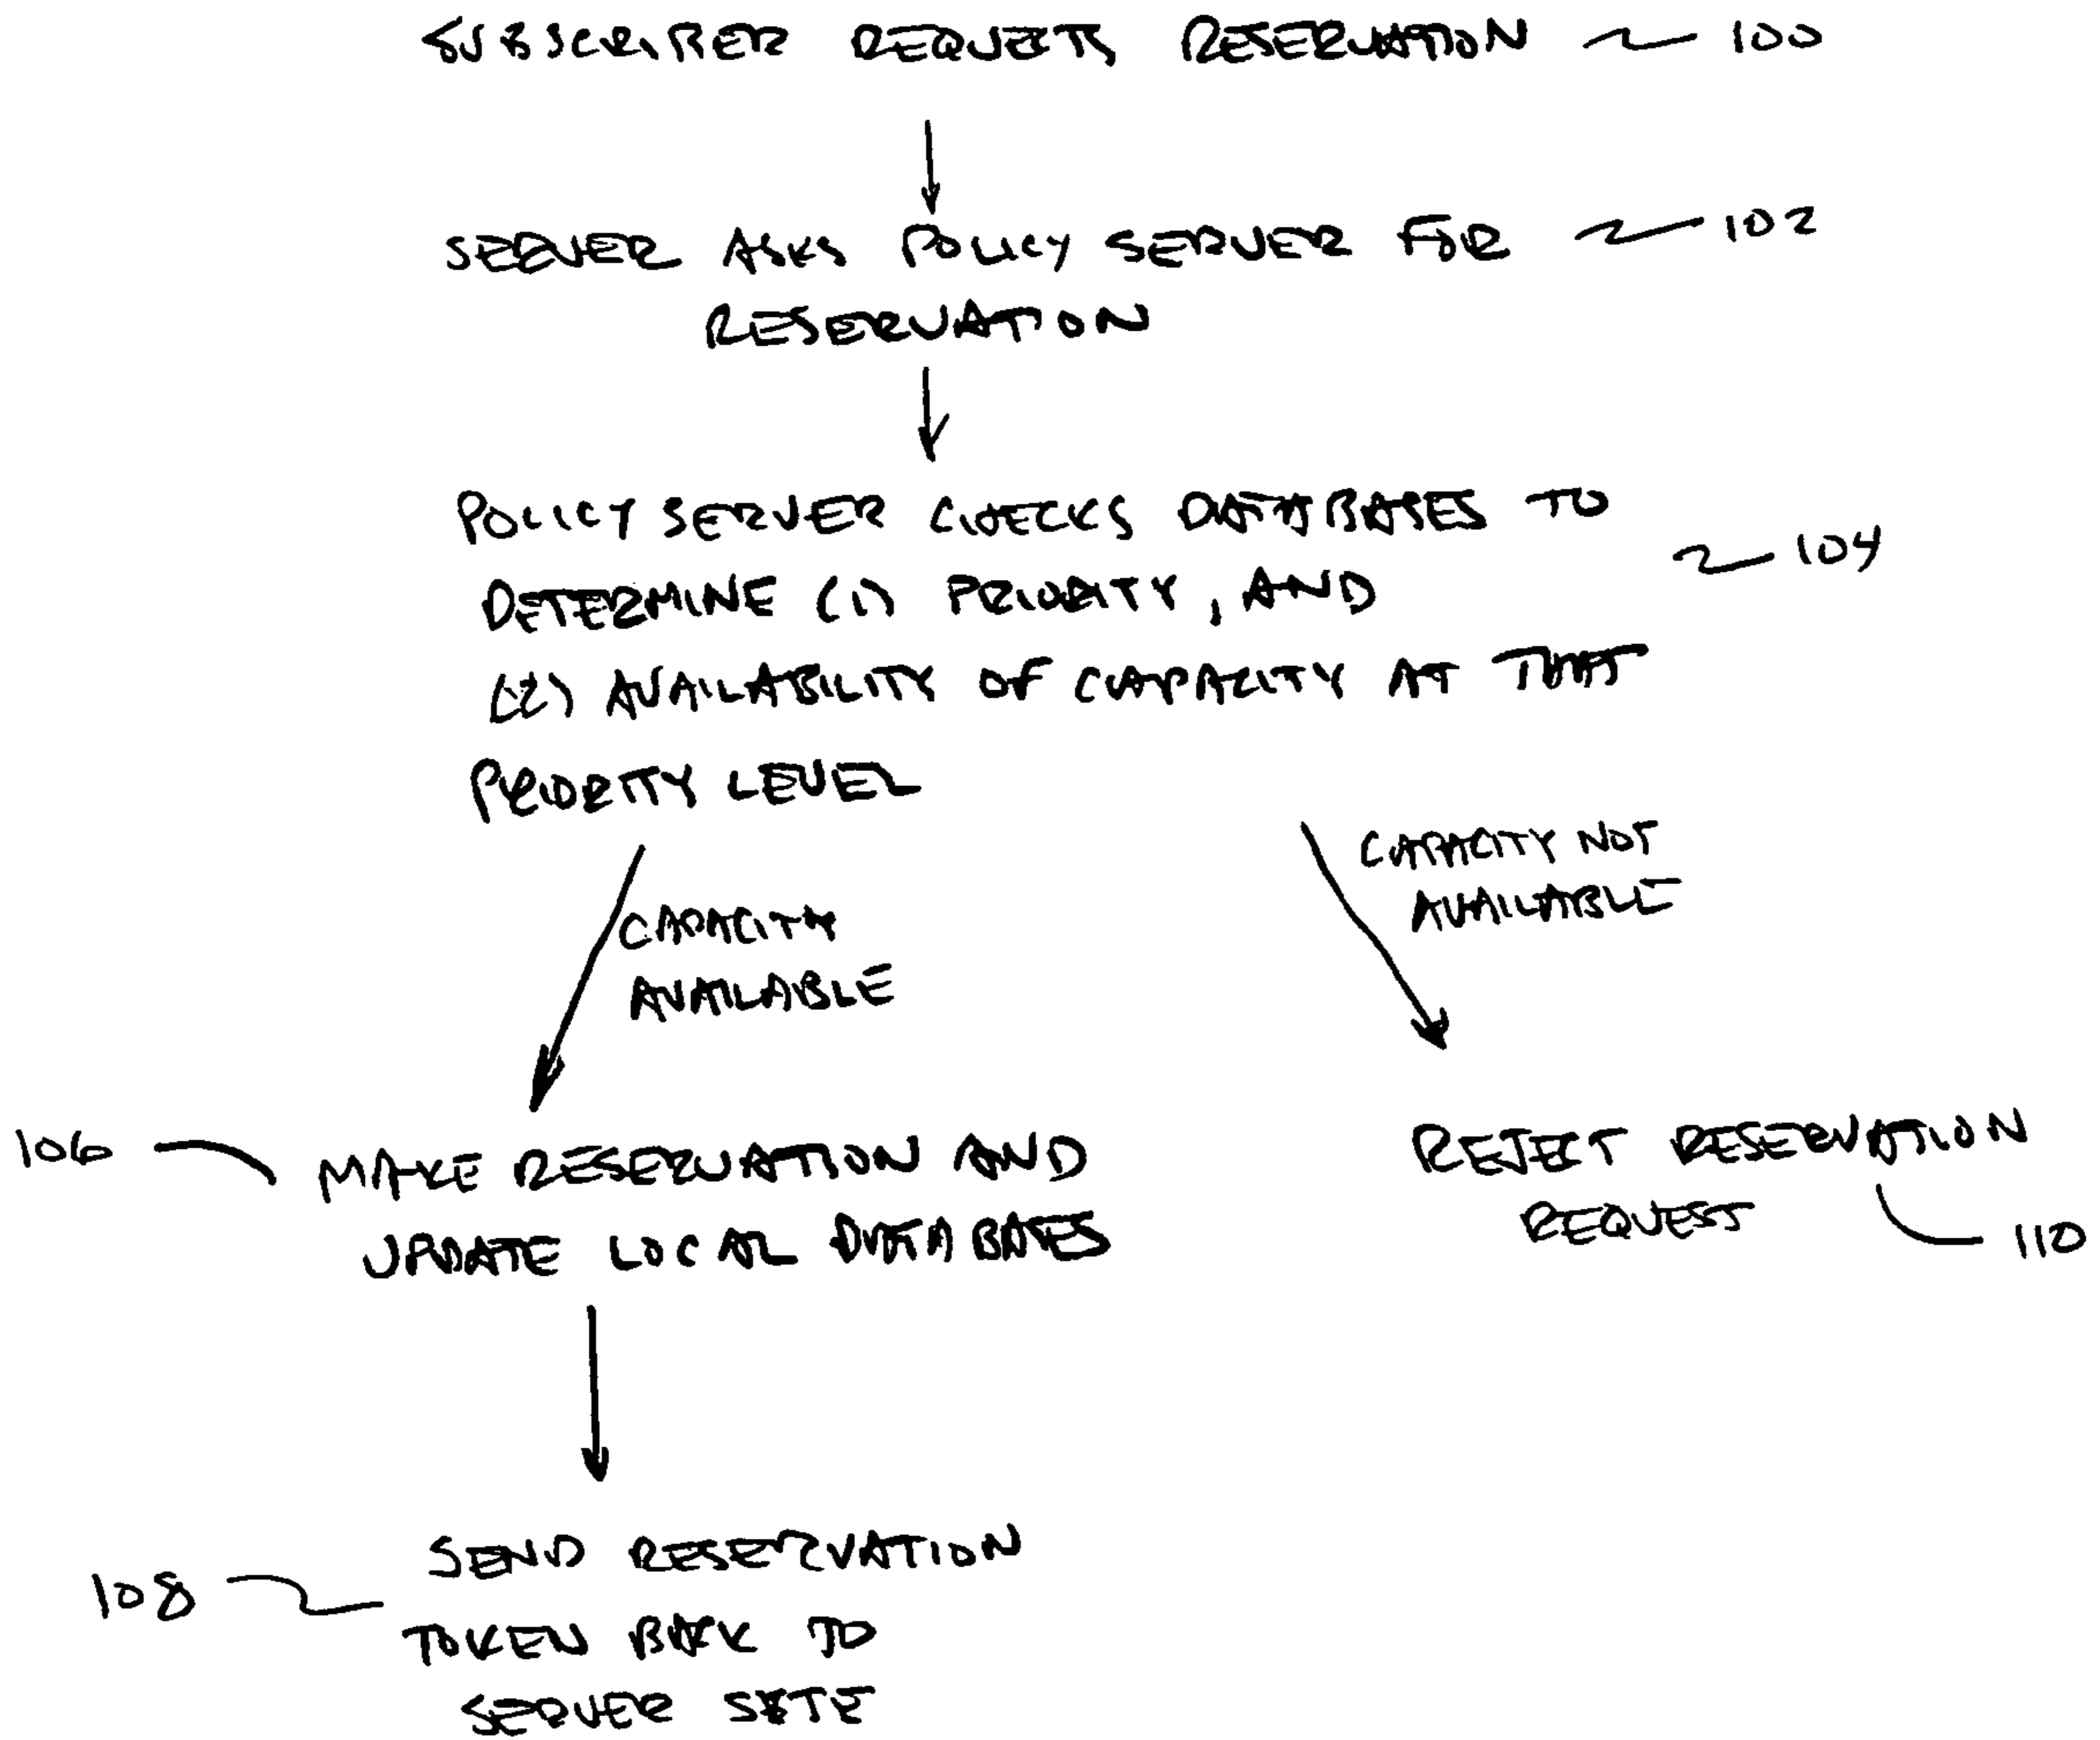 SUBSCRIBER REQUESTS RESERVATION 100
SERVER ASKS POLICY SERVER FOR 102
RESERVATION
POLICY SERVER CHECKS DATABASES TO
104
DETERMINE (1) PRIORITY, AND
(2) AVAILABILITY OF CAPACITY AT THAT
PRIORITY LEVEL
CAPACITY NOT
AVAILABLE
CAPACITY
AVAILABLE
106 MAKE RESERVATION AND
UPDATE LOCAL DATABASES
REJECT RESERVATION
REQUEST
110
SEND RESERVATION
108
TOKEN BACK TO
SERVER SITE